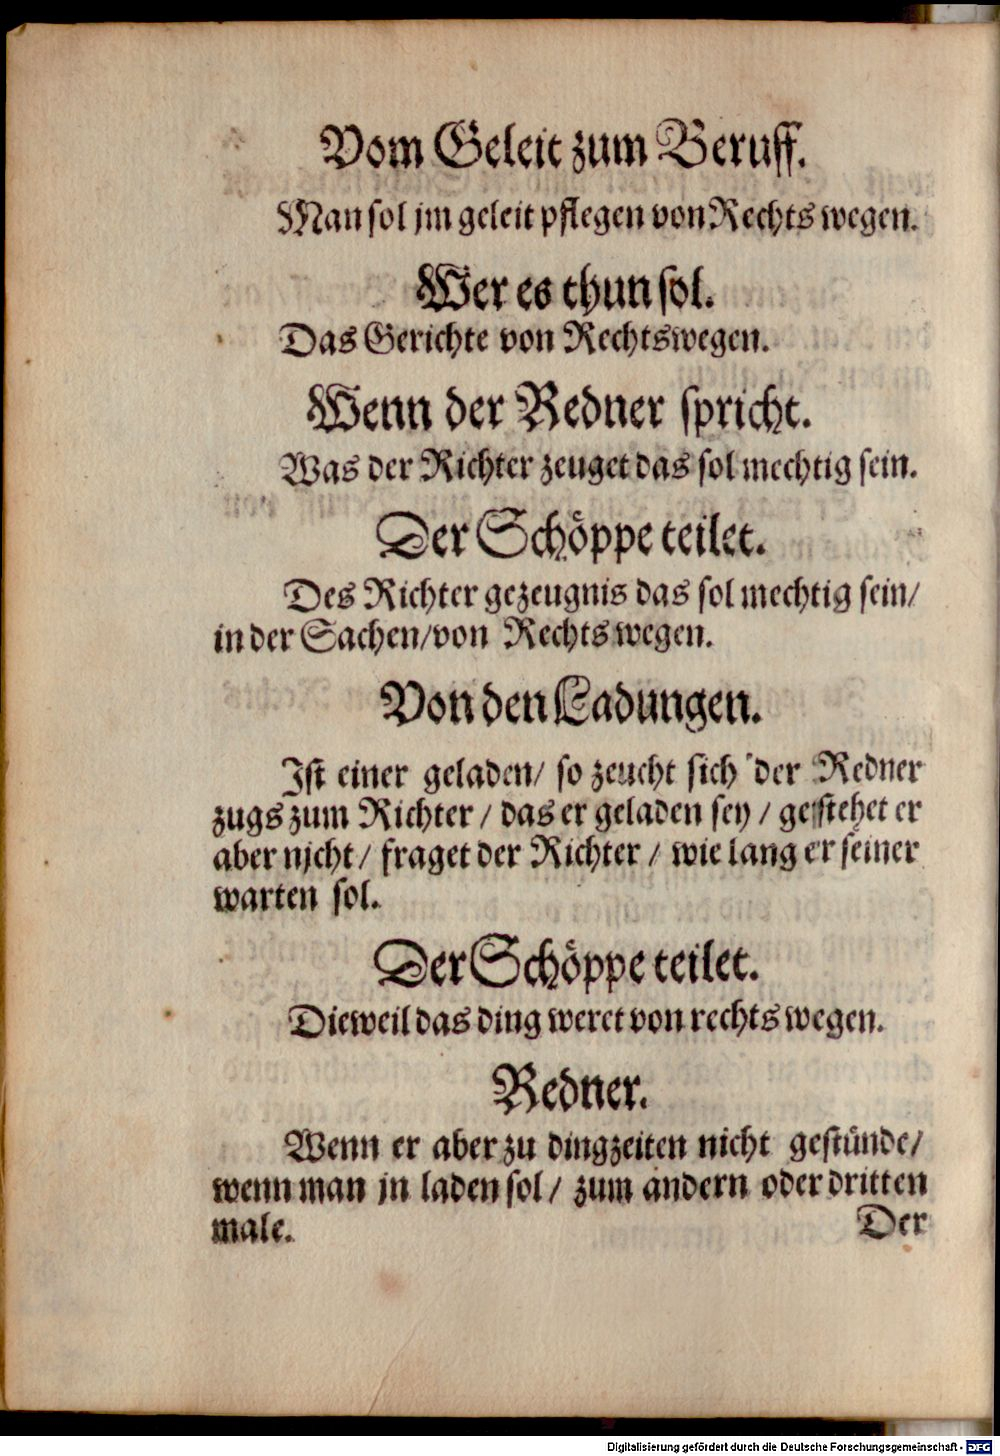 Vom Geleit zum Beruff.
Man sol jm geleit pflegen von Rechts wegen.
Wer es thun sol.
Das Gerichte von Rechtswegen.
Wenn der Redner spricht.
Was der Richter zeuget das sol mechtig sein.
Der Schöppe teilet.
Des Richter gezeugnis das sol mechtig sein/
in der Sachen/von Rechts wegen.
Von den Ladungen.
Ist einer geladen/ so zeucht sich der Redner
zugs zum Richter / das er geladen sey / gestehet er
aber njcht / fraget der Richter / wie lang er seiner
warten sol.
Der Schöppe teilet.
Dieweil das ding weret von rechts wegen.
Redner.
Wenn er aber zu dingzeiten nicht gestünde/
wenn man jn laden sol / zum andern oder dritten
male.
Der
Digitalisierung gefördert durch die Deutsche Forschungsgemeinschaft - DFG